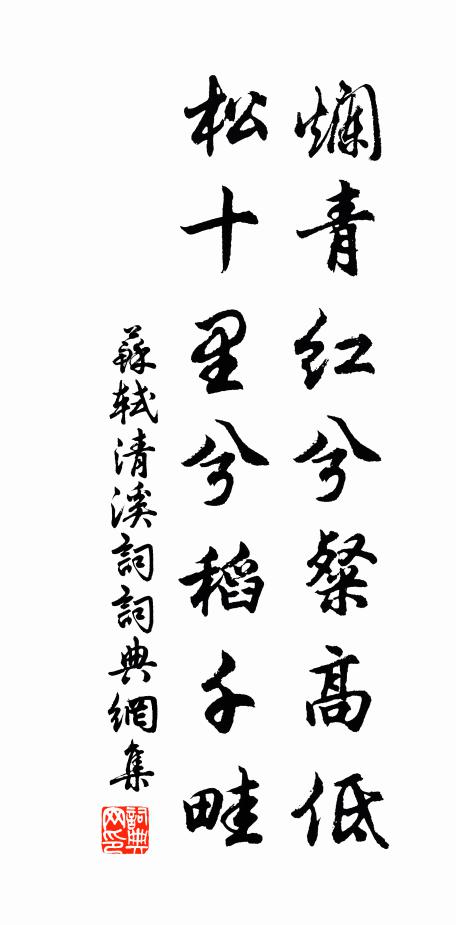 爛青紅兮粲高低
松十里兮稻千畦
蘇軾清溪詞詞典網集
詞典網印